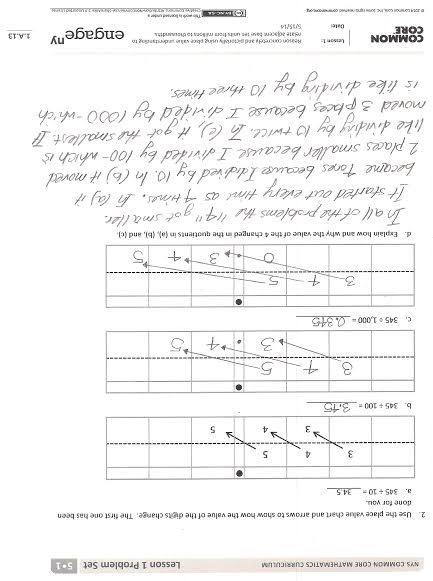 NYS COMMON CORE MATHEMATICS CURRICULUM
Lesson 1 Problem Set 5•1
2. Use the place value chart and arrows to show how the value of the digits change. The first one has been
done for you.
a. 345 ÷ 10 = 34.5
3 4 5
3 4 5
b. 345 ÷ 100 = 3.45
3 4 5
3 4 5
c. 345 ÷ 1,000 = 0.345
3 4 5
0 3 4 5
d. Explain how and why the value of the 4 changed in the quotients in (a), (b), and (c).
In all of the problems the "4" got smaller.
It started out every time as 4 tens. In (a) it
became 4 ones because I divided by 10. In (b) it moved
2 places smaller because I divided by 100 - which is
like dividing by 10 twice. In (c), it got the smallest. It
moved 3 places because I divided by 1000 - which
is like dividing by 10 three times.
COMMON
CORE
Lesson 1:
Date:
Reason concretely and pictorially using place value understanding to
relate adjacent base ten units from millions to thousandths.
5/15/14
engage ny
1.A.13